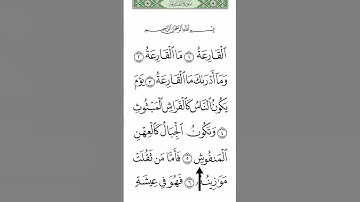 بسم الله الرحمن الرحيم
ٱلْقَارِعَةُ ١ مَا ٱلْقَارِعَةُ ٢
وَمَآ أَدْرَىٰكَ مَا ٱلْقَارِعَةُ ٣ يَوْمَ
يَكُونُ ٱلنَّاسُ كَٱلْفَرَاشِ ٱلْمَبْثُوثِ
٤ وَتَكُونُ ٱلْجِبَالُ كَٱلْعِهْنِ
ٱلْمَنفُوشِ ٥ فَأَمَّا مَن ثَقُلَتْ
مَوَٰزِينُهُۥ ٦ فَهُوَ فِى عِيشَةٍ